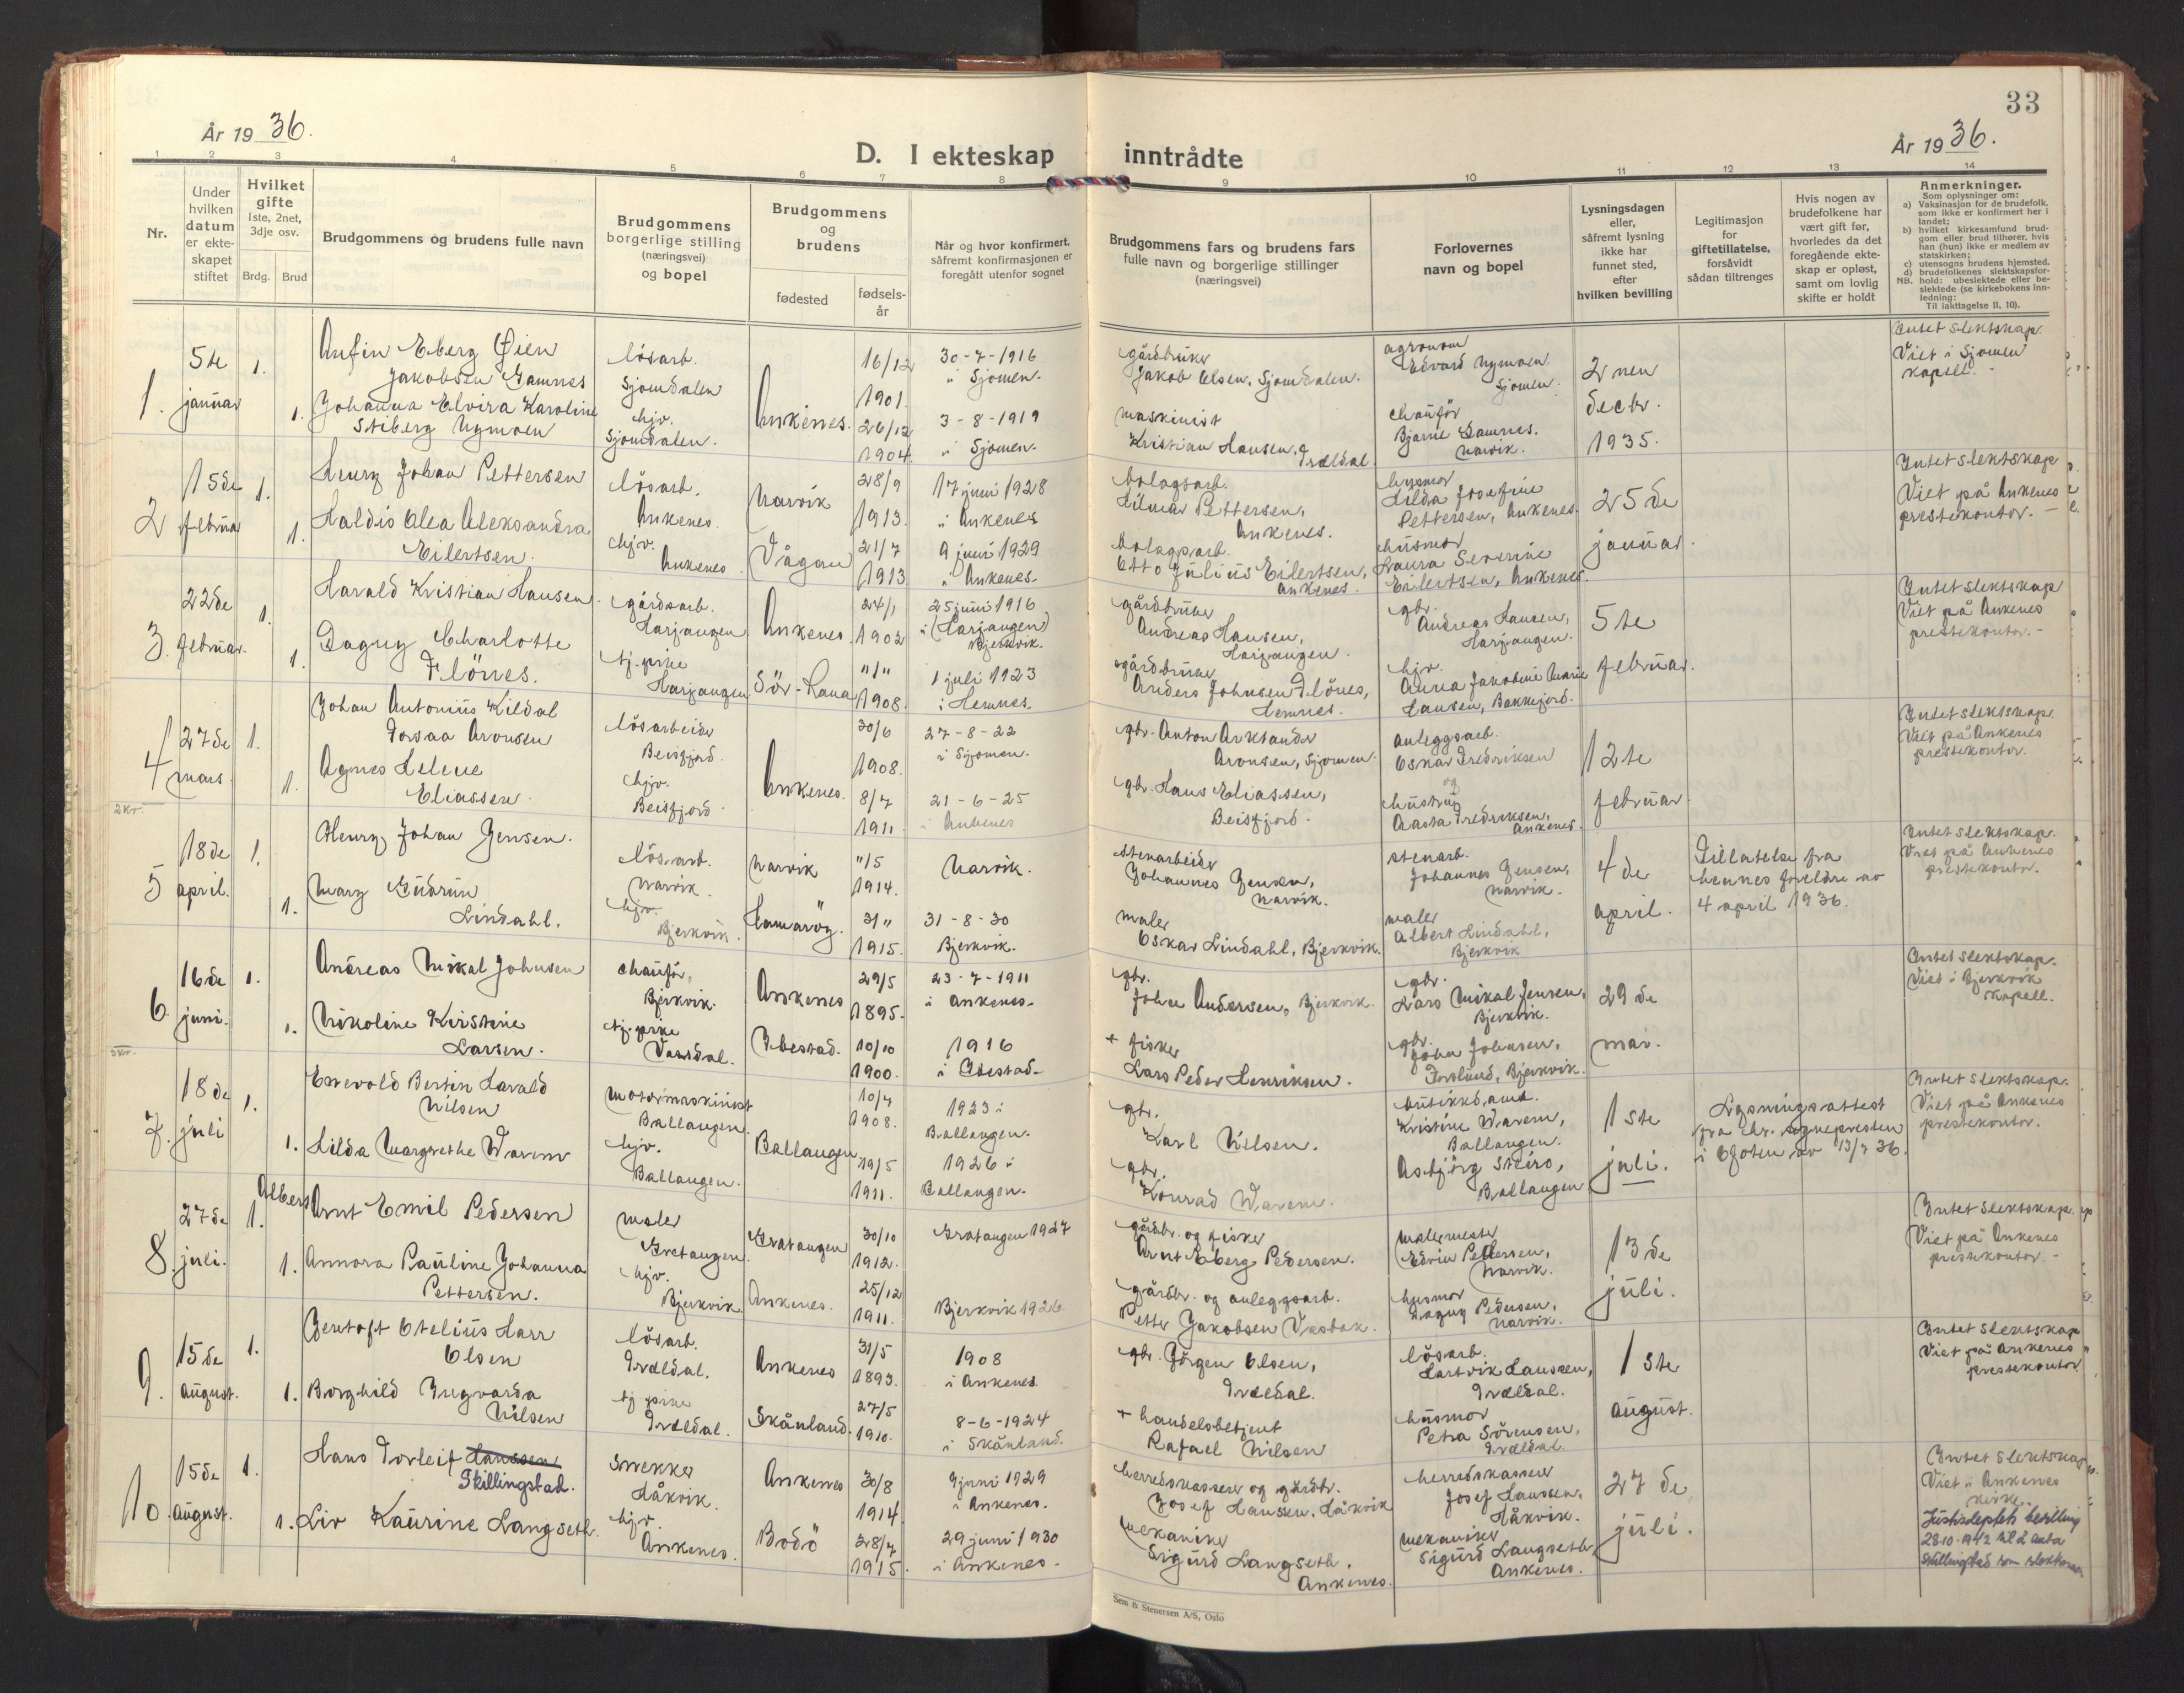 33
År 1936.
År 1936.
D. I ekteskap inntrådte
1
2
3
4
5
6
7
8
9
10
11
12
13
14
Nr.
Under
hvilken
datum
er ekte-
skapet
stiftet
Hvilket
gifte
1ste, 2net,
3dje osv.
Brdg.
Brud
Brudgommens og brudens fulle navn
Brudgommens
borgerlige stilling
(næringsvei)
og bopel
Brudgommens
og
brudens
fødested
fødsels-
år
Når og hvor konfirmert,
såfremt konfirmasjonen er
foregått utenfor sognet
Brudgommens fars og brudens fars
fulle navn og borgerlige stillinger
(næringsvei)
Forlovernes
navn og bopel
Lysningsdagen
eller,
såfremt lysning
ikke har
funnet sted,
efter
hvilken bevilling
Legitimasjon
for
giftetillatelse,
forsåvidt
sådan tiltrenges
Hvis nogen av
brudefolkene har
vært gift før,
hvorledes da det
foregående ekte-
skap er opløst,
samt om lovlig
skifte er holdt
Anmerkninger.
Som oplysninger om:
a) Vaksinasjon for de brudefolk,
som ikke er konfirmert her i
landet;
b) hvilket kirkesamfund brud-
gom eller brud tilhører, hvis
han (hun) ikke er medlem av
statskirken;
c) utensogns brudens hjemsted.
d) brudefolkenes slektskapsfor-
hold: ubeslektede eller be-
slektede (se kirkebokens inn-
ledning:
NB.
Til iakttagelse II. 10).
1.
5te
januar
1.
1.
Anfin Eberg Øien
Jakobsen Gamnes
Johanna Elvira Karoline
Stiberg Nymoen
lösarb.
Sjomdalen
hjv.
Sjomdalen.
Ankenes.
16/12
1901.
26/12
1904.
30-7-1916
i Sjomen.
3-8-1919
i Sjomen.
gårdbruker
Jakob Olsen, Sjomdalen.
maskinist
Kristian Hansen, Trældal
agronom
Edvard Nymoen
Sjomen.
chauför
Bjarne Gamnes.
Narvik.
2nen
decbr.
1935.
Intet slektskap.
Viet i Sjomen
kapell.
2
15de
februar
1.
1.
Henry Johan Pettersen
Haldis Olea Aleksandra
Eilertsen.
lösarb.
Ankenes.
hjv.
Ankenes
Narvik
Vågan
28/9
1913.
21/7
1913
17 juni 1928
i Ankenes
9 juni 1929
i Ankenes.
bolagsarb.
Hilmar Pettersen,
Ankenes.
bolagsarb.
Otto Julius Eilertsen,
Ankenes.
husmor
Hilda Josefine
Pettersen, Ankenes.
husmor
Laura Severine
Eilertsen, Ankenes.
25de
januar.
Intet slektskap
Viet på Ankenes
prestekontor.
3.
22de
februar.
1.
1.
Harald Kristian Hansen
Dagny Charlotte
Flönes.
gårdsarb.
Harjangen
tj.pike
Harjangen
Ankenes
Sör-Rana
24/1
1902
"/"
1908.
25 juni 1916
i (Harjangen)
Bjerkvik.
1 juli 1923
i Hemnes.
gårdbruker
Andreas Hansen,
Harjangen.
gårdbruker
Anders Johnsen Flönes,
Hemnes.
gbr.
Andreas Hansen,
Harjangen.
hjv.
Anna Jakobine Marie
Hansen, Bakkejord.
5te
februar.
Intet slektskap
Viet på Ankenes
prestekontor.
4
27de
mars.
1.
1.
Johan Antonius Kildal
Forsaa Aronsen
Agnes Helene
Eliassen.
lösarbeider
Beisfjord.
hjv.
Beisfjord.
Ankenes.
30/6
1908.
8/7
1911.
27-8-22
i Sjomen.
21-6-25
i Ankenes
gbr. Anton Arktander
Aronsen, Sjomen.
gbr. Hans Eliassen,
Beisfjord.
anleggsarb.
Oskar Fredriksen
og
hustru
Aasta Fredriksen,
Ankenes.
12te
februar.
Intet slektskap.
Viet på Ankenes
prestekontor.
2 kr.
5
18de
april.
1.
1.
Henry Johan Jensen.
Mary Gudrun
Lindahl.
lösarb.
Narvik.
hjv.
Bjerkvik.
Narvik
Hamaröy.
"/5
1914.
31/"
1915.
Narvik.
31-8-30
Bjerkvik.
stenarbeider
Johannes Jensen,
Narvik.
maler
Oskar Lindahl, Bjerkvik.
stenarb.
Johannes Jensen,
Narvik.
maler
Albert Lindahl,
Bjerkvik
4de
april.
Tillatelse fra
hennes foreldre av
4 april 1936.
Intet slektskap.
Viet på Ankenes
prestekontor.
6
16de
juni.
1.
1.
Andreas Mikal Johnsen
Nikoline Kirstine
Larsen.
chauför,
Bjerkvik.
tj.pike
Vassdal.
Ankenes
Ibestad.
29/5
1895.
10/10
1900.
23-7-1911
i Ankenes.
1916
i Ibestad.
gbr.
John Andersen, Bjerkvik.
+ fisker
Lars Peder Henriksen.
gbr.
Lars Mikal Jensen,
Bjerkvik.
gbr.
John Johnsen,
Forslund, Bjerkvik.
29de
mai.
Intet slektskap.
Viet i Bjerkvik
kapell.
7.
18de
juli
1.
1.
Enevold Bertin Harald
Nilsen
Hilda Margrethe Warem
motormaskinist
Ballangen.
hjv.
Ballangen.
Ballangen
10/7
1908.
19/5
1911.
1923 i
Ballangen.
1926 i
Ballangen.
gbr.
Karl Nilsen.
gbr.
Konrad Warem.
butikkdame
Kristine Warem,
Ballangen.
Asbjörg Steiro,
Ballangen
1ste
juli.
Lysningsattest
fra hr. sognepresten
i Ofoten av 13/7 36.
Intet slektskap.
Viet på Ankenes
prestekontor.
8.
27de
juli.
1.
1.
Albert
Arnt Emil Pedersen
Annora Pauline Johanna
Pettersen.
maler
Gratangen.
hjv.
Bjerkvik
Gratangen
Ankenes.
30/10
1912.
25/12
1911.
Gratangen 1927
Bjerkvik 1926.
gårdbr. og fisker
Arnt Eberg Pedersen.
gårdbr. og anleggsarb.
Petter Jakobsen Vasbak.
malermester
Edvin Pedersen,
Narvik.
husmor
Dagny Pedersen,
Narvik.
13de
juli.
Intet slektskap.
Viet på Ankenes
prestekontor.
9.
15de
august.
1.
1.
Jentoft Otelius Harr
Olsen
Borghild Ingvarda
Nilsen
lösarb.
Trældal.
tj pike
Trældal.
Ankenes
Skånland.
31/5
1893.
27/5
1910.
1908
i Ankenes.
8-6-1924
i Skånland.
gbr. Jörgen Olsen,
Trældal.
+ handelsbetjent
Rafael Nilsen
lösarb.
Hartvik Hanssen,
Trældal.
husmor
Petra Sörensen,
Trældal.
1ste
august.
Intet slektskap
Viet på Ankenes
prestekontor
10.
15de
august.
1.
1.
Hans Torleif Hanssen
Skillingstad.
Liv Kaurine Langseth.
snekker
Håkvik.
hjv.
Ankenes.
Ankenes
Bodö
30/8
1914.
28/7
1915.
9 juni 1929
i Ankenes.
29 juni 1930
i Ankenes.
herredskasserer og gårdbr.
Josef Hansen, Håkvik
mekaniker
Sigurd Langseth,
Ankenes.
herredskasserer
Josef Hanssen,
Håkvik.
mekaniker
Sigurd Langseth
Ankenes.
27de
juli.
Intet slektskap
Viet i Ankenes
kirke.
Justisdeptets bevilling
28.10.1942 til å anta
Skillingstad som slektsnavn
Sem & Stenersen A/S, Oslo